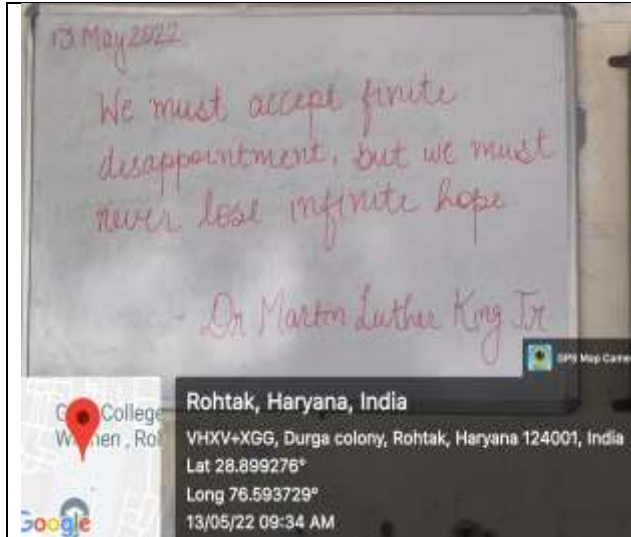 13 May 2022
We must accept finite
disappointment, but we must
never lose infinite hope
- Dr Martin Luther King Jr
GPS Map Camera
College
Google
Rohtak, Haryana, India
VHXV+XGG, Durga colony, Rohtak, Haryana 124001, India
Lat 28.899276°
Long 76.593729°
13/05/22 09:34 AM